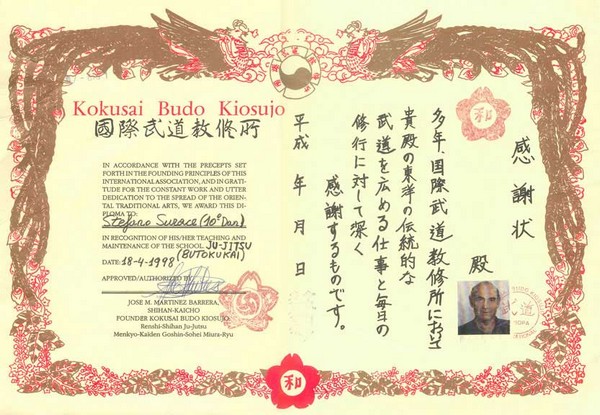 Kokusai Budo Kiosujo
國際武道教修所
IN ACCORDANCE WITH THE PRECEPTS SET
FORTH IN THE FOUNDING PRINCIPLES OF THIS
INTERNATIONAL ASSOCIATION, AND IN GRATI-
TUDE FOR THE CONSTANT WORK AND UTTER
DEDICATION TO THE SPREAD OF THE ORIEN-
TAL TRADITIONAL ARTS, WE AWARD THIS DI-
PLOMA TO:
Stefano Surace (10º Dan)
IN RECOGNITION OF HIS/HER TEACHING AND
MAINTENANCE OF THE SCHOOL JU-JITSU
(BUTOKUKAI)
DATE: 18-4-1998
APPROVED/AUTHORIZED BY
JOSE M. MARTINEZ BARRERA,
SHIHAN-KAICHO
FOUNDER KOKUSAI BUDO KIOSUJO
Renshi-Shihan Ju-Jutsu
Menkyo-Kaiden Goshin-Sohei Miura-Ryu
感謝状
殿
多年、国際武道教修所において
貴殿の東洋の伝統的な
武道を広める仕事と毎日の
修行に対して深く
感謝するものです。
平成 年 月 日
和
武道
和